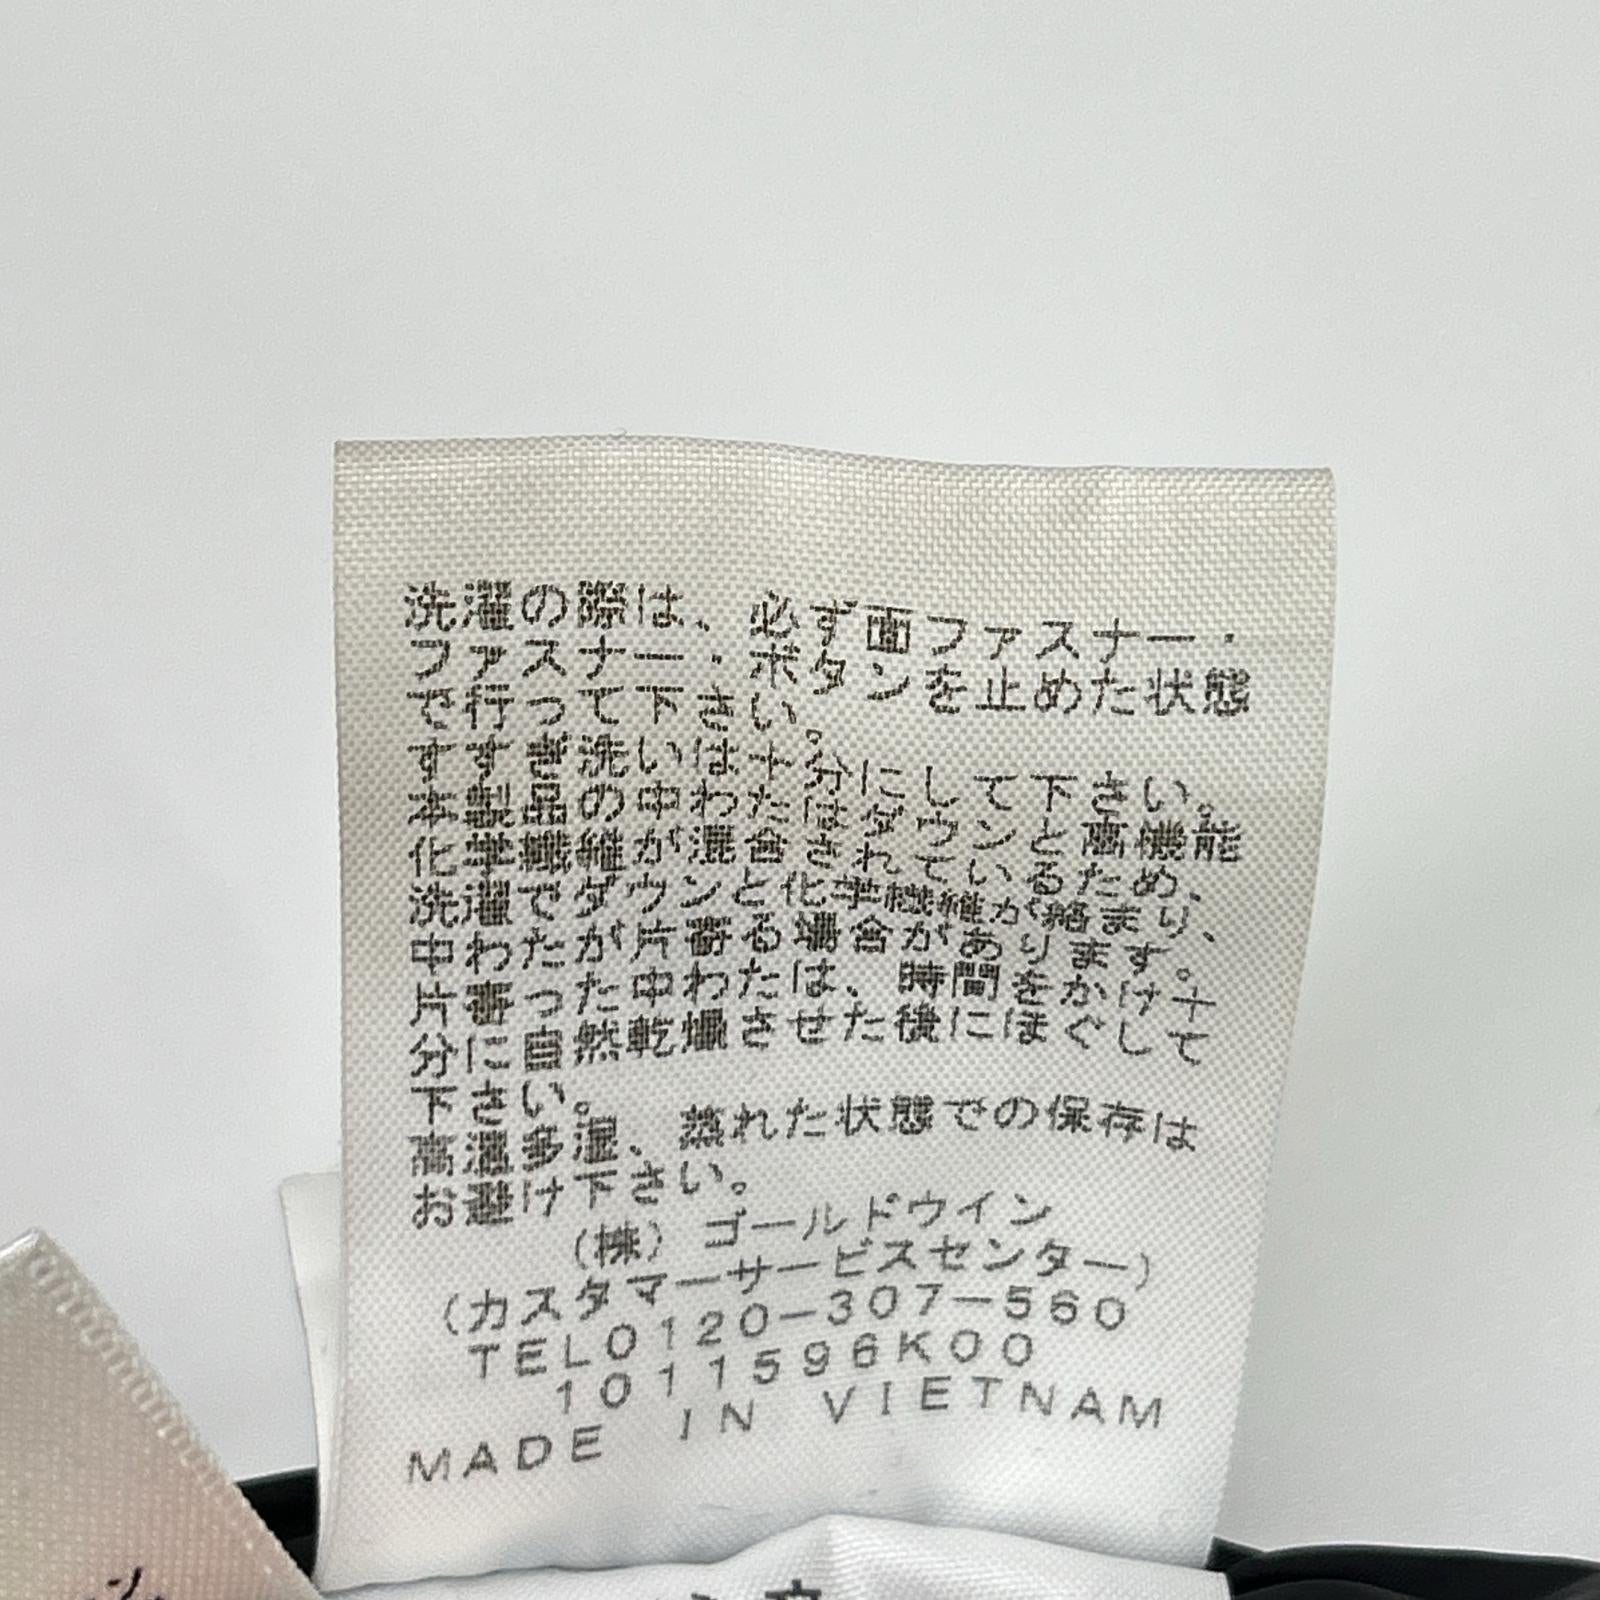 洗濯の際は、必ず面ファスナー・
ファスナー・ボタンを止めた状態
で行って下さい。
すすぎ洗いは十分にして下さい。
本製品の中わたはダウンと高機能
化学繊維が混合されているため、
洗濯でダウンと化学繊維が絡まり、
中わたが片寄る場合があります。
片寄った中わたは、時間をかけ十
分に自然乾燥させた後にほぐして
下さい。
高温多湿、蒸れた状態での保存は
お避け下さい。
(株)ゴールドウイン
(カスタマーサービスセンター)
TEL0120-307-560
1011596K00
MADE IN VIETNAM